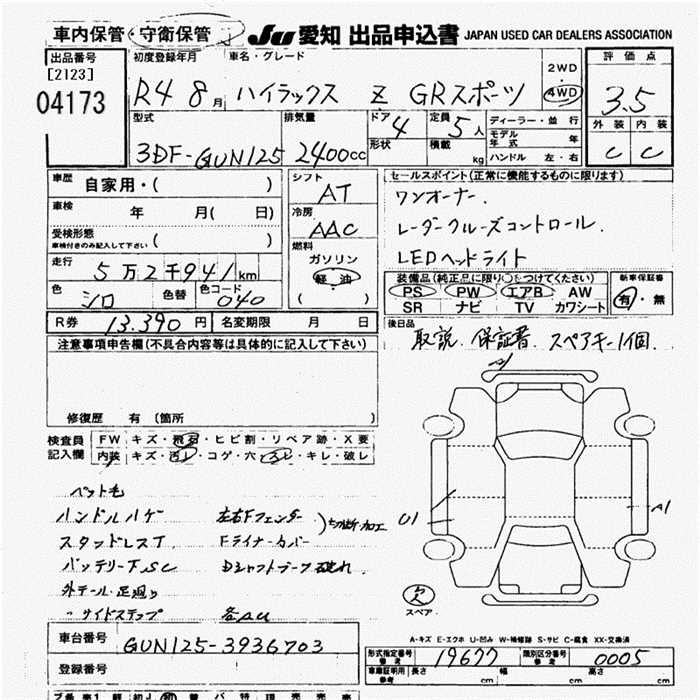 車内保管・守衛保管
JU 愛知 出品申込書 JAPAN USED CAR DEALERS ASSOCIATION
出品番号
[2123]
04173
初度登録年月
車名・グレード
R4 8月 ハイラックス Z GRスポーツ
2WD
4WD
評価点
3.5
外装 内装
C C
型式
3DF-GUN125
排気量
2400cc
ドア 4
形状
定員 5人
積載 kg
ディーラー・並行
モデル年式 年
ハンドル 左・右
車歴
自家用・( )
車検
年 月( 日)
受検形態
車検付きのみ記入して下さい ( )
走行
5万2千941km
色
シロ
色替
色コード
040
シフト
AT
冷房
AAC
燃料
ガソリン
軽油
( )
セールスポイント(正常に機能するものに限ります)
ワンオーナー.
レーダークルーズコントロール.
LEDヘッドライト
装備品(純正品に限り〇をつけてください)
PS PW エアB AW
SR ナビ TV カワシート
新車保証書
有・無
R券 13.390円 名変期限 月 日
後日品
取説. 保証書. スペアキー1個.
注意事項申告欄(不具合内容等は具体的に記入して下さい)
修復歴 有 (箇所 )
検査員
記入欄
FW キズ・飛石・ヒビ割・リペア跡・X要
内装 キズ・汚レ・コゲ・穴・スレ・キレ・破レ
ペット毛
ハンドルハゲ 左右Fフェンダー
スタッドレスT Fライナーカバー
切断・加工
バッテリー下SC Dシャフトブーツ破れ
外テール・足廻り
〃サイドステップ 各AU
U1
A1
欠
スペア
A-キズ E-エクボ U-凹み W-補修跡 S-サビ C-腐食 XX-交換済
車台番号 GUN125-3936703
登録番号
形式指定番号
参考
19677
類別区分番号
参考
0005
車庫証明用
参考
長さ cm 幅 cm 高さ cm